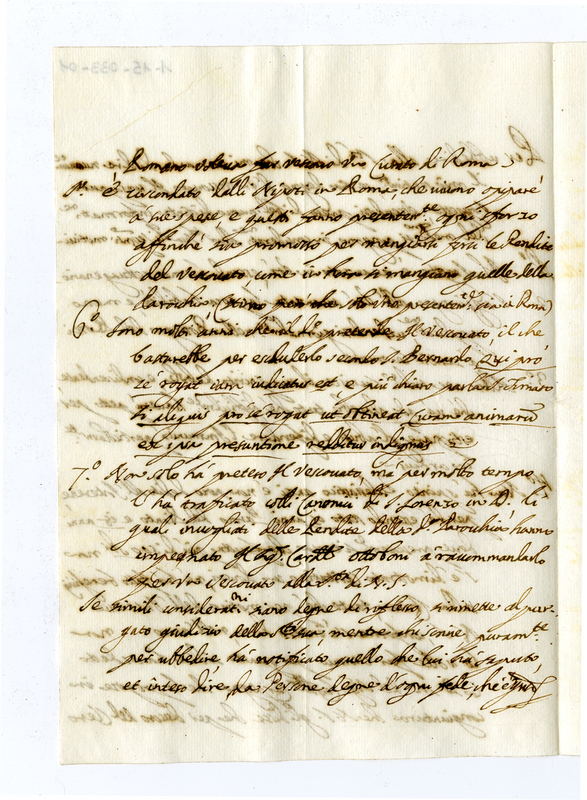 Romano volerà far vescovo Curato di Roma
è circondato dalli Nipoti in Roma, che vivono
a sue spese, e questi fanno presentem.te ogni sforzo
affinchè sia promosso per mangiarsi le Rendite
del Vescovato, come si mangiano quelle della
Parochia, che solo presentem.te in Roma)
6.º Sono molti anni che pretende il Vescovato, il che
bastarebbe per escluderlo secondo S. Bernardo, Qui pro
se rogat iam iudicatus est, e più chiaro
Si aliquis pro se rogat ut obtineat Curam animarum
ex ipsa presuntione redditur indignus
7.º Non solo hà preteso il Vescovato, mà per molto tempo
l'hà trafficato colli Canonici di S. Lorenzo in D., li
quali invogliati delle Rendite della Parocchia hanno
impegnato il Sig.r Card.le Ottoboni à raccomandarlo
per un Vescovato alla S.tà di N. S.
Se simili considerat.ni siano degne di riflesso, si rimette al pur-
gato giudizio della mentre chi scrive, puram.te
per ubbedire hà notificato quello che hà saputo,
et inteso dire, da Persone degne d'ogni fede, che